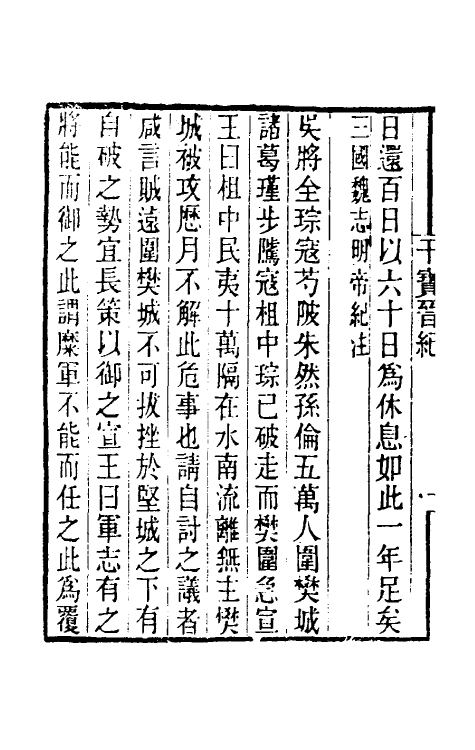 干寶晉紀
日還百日以六十日爲休息如此一年足矣
三國魏志明帝紀注
吳將全琮寇芍陂朱然孫倫五萬人圍樊城
諸葛瑾步騭寇柤中琮已破走而樊圍急宣
王曰柤中民夷十萬隔在水南流離無主樊
城被攻歷月不解此危事也請自討之議者
咸言賊遠圍樊城不可拔挫於堅城之下有
自破之勢宜長策以御之宣王曰軍志有之
將能而御之此謂縻軍不能而任之此爲覆